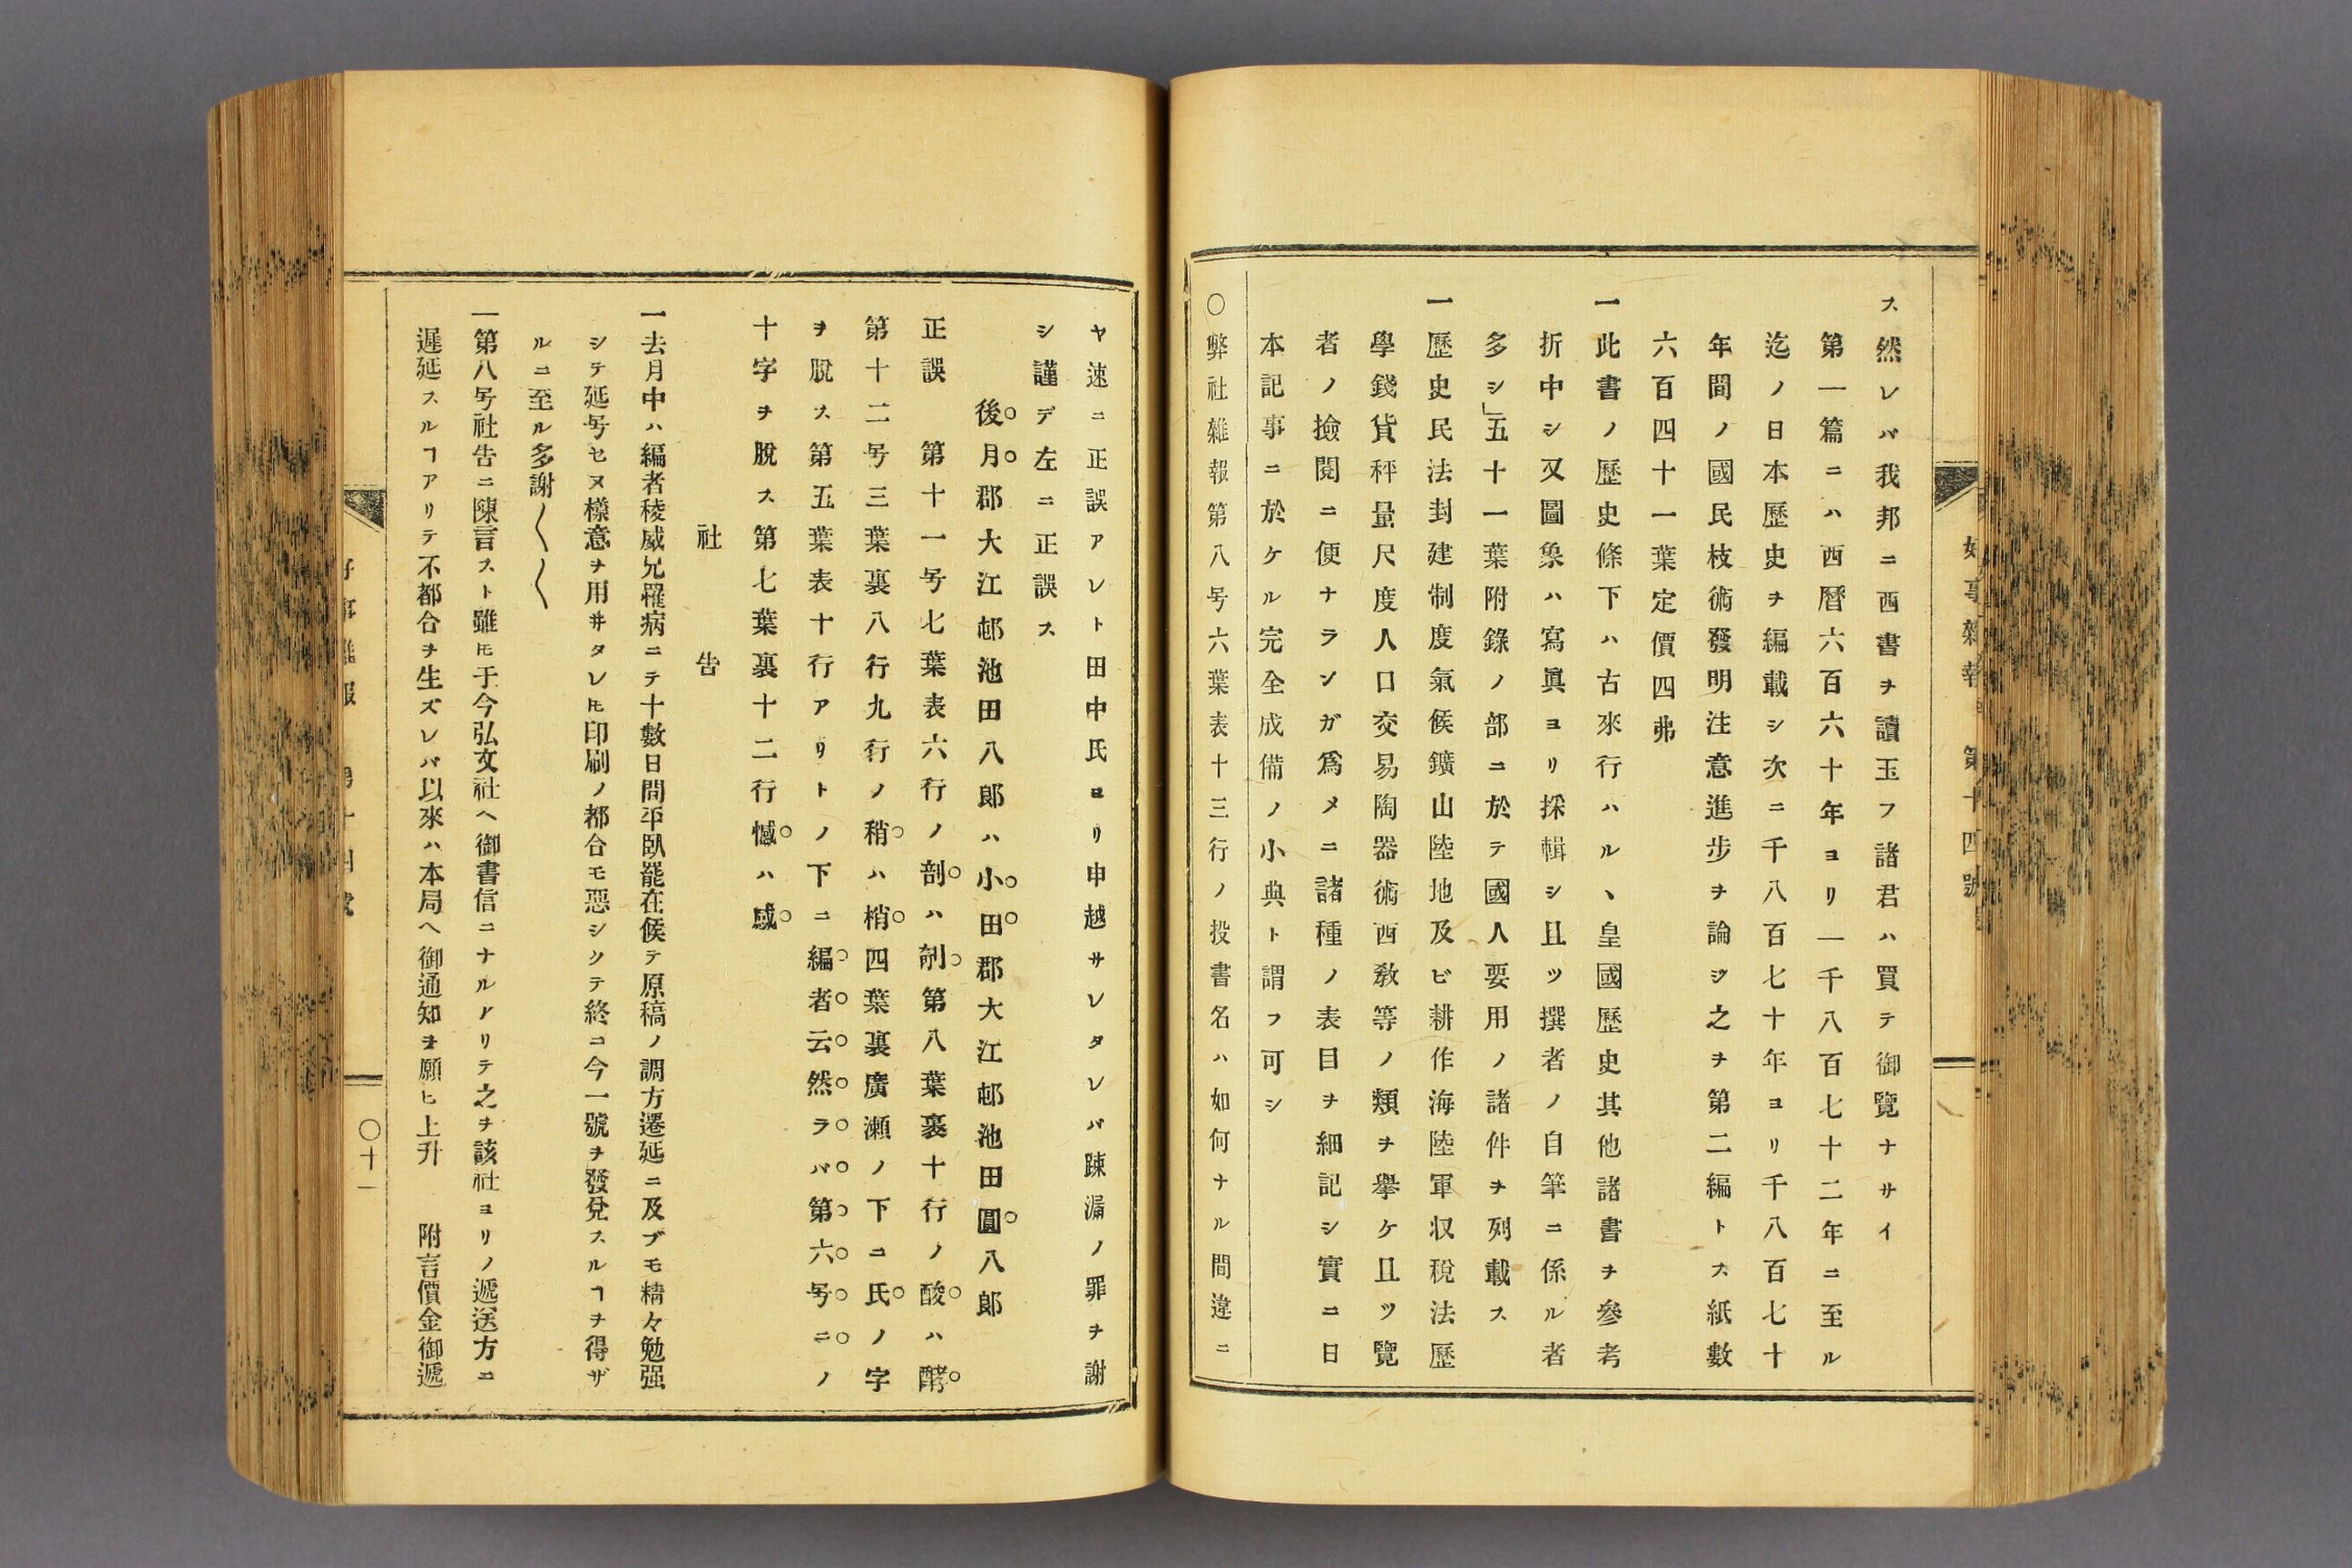 好事雜報 第十四號
ス然レバ我邦ニ西書ヲ讀玉フ諸君ハ買テ御覽ナサイ
第一篇ニハ西曆六百六十年ヨリ一千八百七十二年ニ至ル
迄ノ日本歷史ヲ編載シ次ニ千八百七十年ヨリ千八百七十
年間ノ國民枝術發明注意進步ヲ論ジ之ヲ第二編トス紙數
六百四十一葉定價四弗
一此書ノ歷史條下ハ古來行ハルヽ皇國歷史其他諸書ヲ參考
折中シ又圖象ハ寫眞ヨリ採輯シ且ツ撰者ノ自筆ニ係ル者
多シ」五十一葉附錄ノ部ニ於テ國人要用ノ諸件ヲ列載ス
一歷史民法封建制度氣候鑛山陸地及ビ耕作海陸軍収稅法歷
學錢貨秤量尺度人口交易陶器術西敎等ノ類ヲ擧ケ且ツ覽
者ノ撿閱ニ便ナランガ爲メニ諸種ノ表目ヲ細記シ實ニ日
本記事ニ於ケル完全成備ノ小典ト謂フ可シ
○弊社雜報第八号六葉表十三行ノ投書名ハ如何ナル間違ニ
ヤ速ニ正誤アレト田中氏ヨリ申越サレタレバ踈漏ノ罪ヲ謝
シ謹デ左ニ正誤ス
後月郡大江邨池田八郞ハ小田郡大江邨池田圓八郞
正誤 第十一号七葉表六行ノ剖ハ剞第八葉裏十行ノ酸ハ酵
第十二号三葉裏八行九行ノ稍ハ梢四葉裏廣瀨ノ下ニ氏ノ字
ヲ脫ス第五葉表十行アリトノ下ニ編者云然ラバ第六号ニノ
十字ヲ脫ス第七葉裏十二行憾ハ感
社告
一去月中ハ編者稜威兄罹病ニテ十數日間平臥罷在候テ原稿ノ調方遷延ニ及ブモ精々勉强
シテ延号セヌ樣意ヲ用ヰタレ𪜈印刷ノ都合モ惡シクテ終ニ今一號ヲ發兌スルヿヲ得ザ
ルニ至ル多謝〱〱
一第八号社告ニ陳言スト雖𪜈于今弘文社ヘ御書信ニナルアリテ之ヲ該社ヨリノ遞送方ニ
遲延スルヿアリテ不都合ヲ生ズレバ以來ハ本局ヘ御通知ヲ願ヒ上升 附言價金御遞
○十一